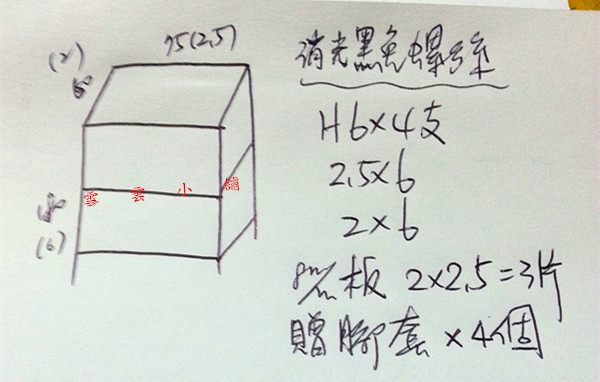 75(2.5)
(2)
60
180
(6)
雲雲小舖
消光黑色螺絲
H6×4支
2.5×6
2×6
8m/m板 2×2.5=3片
贈腳套×4個